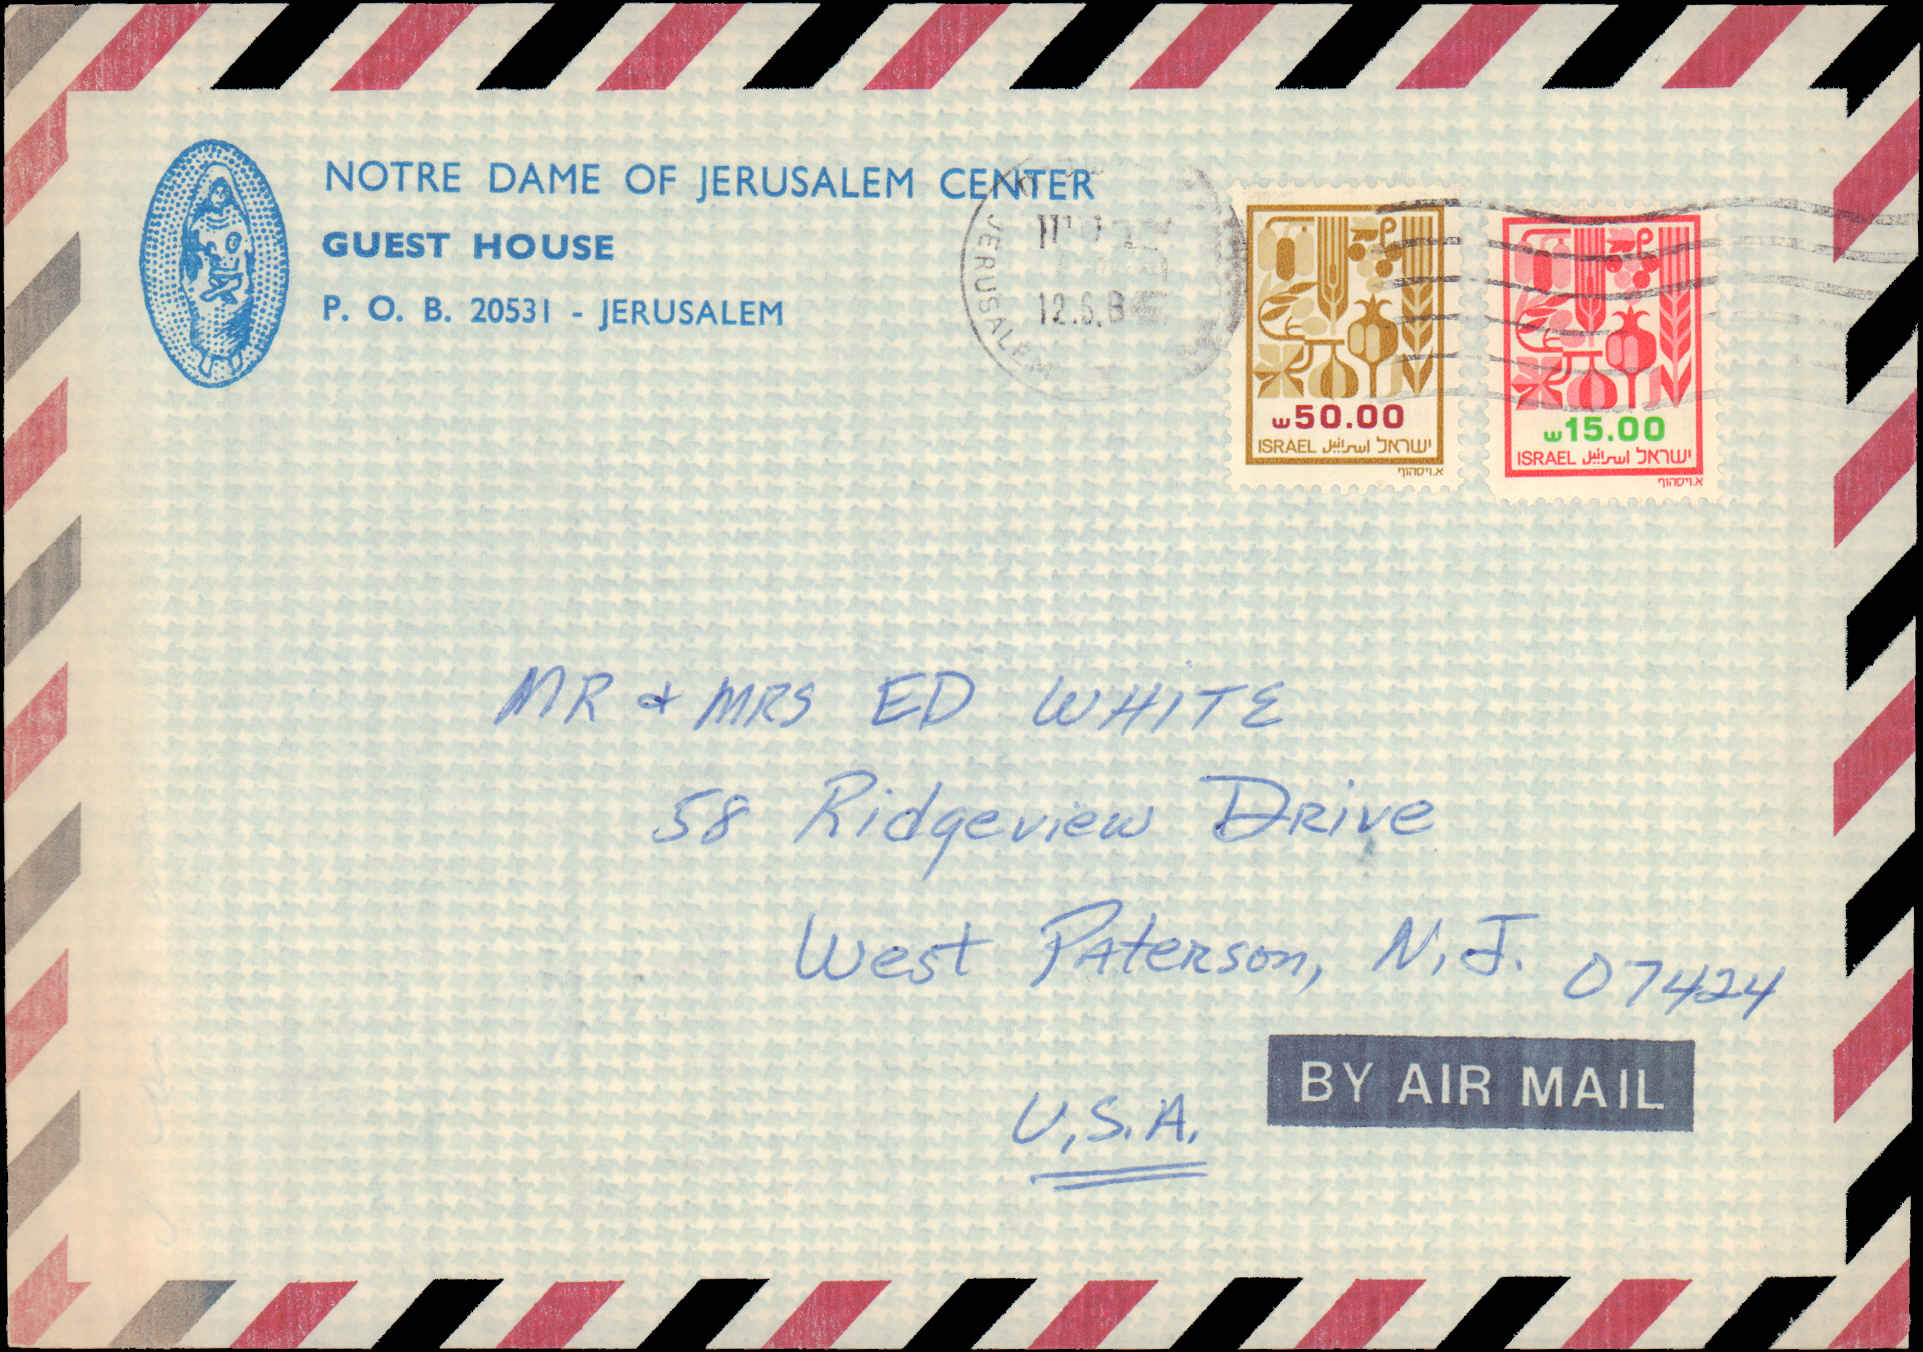 NOTRE DAME OF JERUSALEM CENTER
GUEST HOUSE
P. O. B. 20531 - JERUSALEM
JERUSALEM
12.6.8
ש50.00
ISRAEL اسرائيل ישראל
א.ויסהוף
ש15.00
ISRAEL اسرائيل ישראל
א.ויסהוף
MR & MRS ED WHITE
58 Ridgeview Drive
West Paterson, N.J. 07424
U.S.A.
BY AIR MAIL